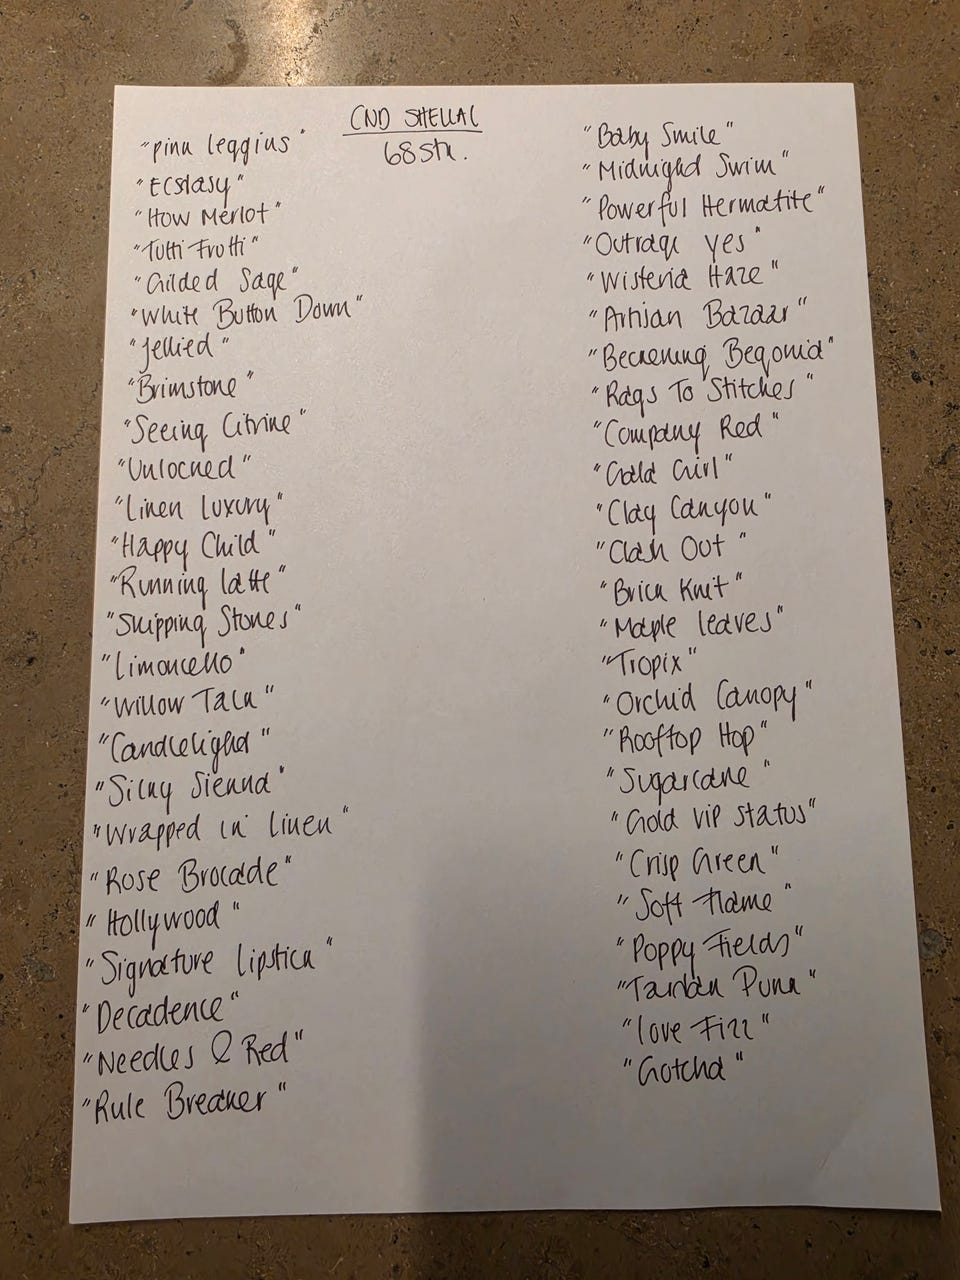 CND SHELLAC
68 stk.
"Pink leggins"
"Ecstasy"
"How Merlot"
"Tutti Frutti"
"Gilded Sage"
"White Button Down"
"Jellied"
"Brimstone"
"Seeing Citrine"
"Unlocked"
"Linen Luxury"
"Happy Child"
"Running latte"
"Skipping Stones"
"Limoncello"
"Willow Talk"
"Candlelight"
"Silky Sienna"
"Wrapped in linen"
"Rose Brocade"
"Hollywood"
"Signature lipstick"
"Decadence"
"Needles & Red"
"Rule Breaker"
"Baby Smile"
"Midnight Swim"
"Powerful Hermatite"
"Outrage yes"
"Wisteria Haze"
"Artisan Bazaar"
"Beckening Begonia"
"Rags To Stitches"
"Company Red"
"Gala Girl"
"Clay Canyon"
"Clash Out"
"Brick Knit"
"Maple leaves"
"Tropix"
"Orchid Canopy"
"Rooftop Hop"
"Sugarcane"
"Gold vip status"
"Crisp Green"
"Soft Flame"
"Poppy Fields"
"Tartan Punk"
"love Fizz"
"Gotcha"